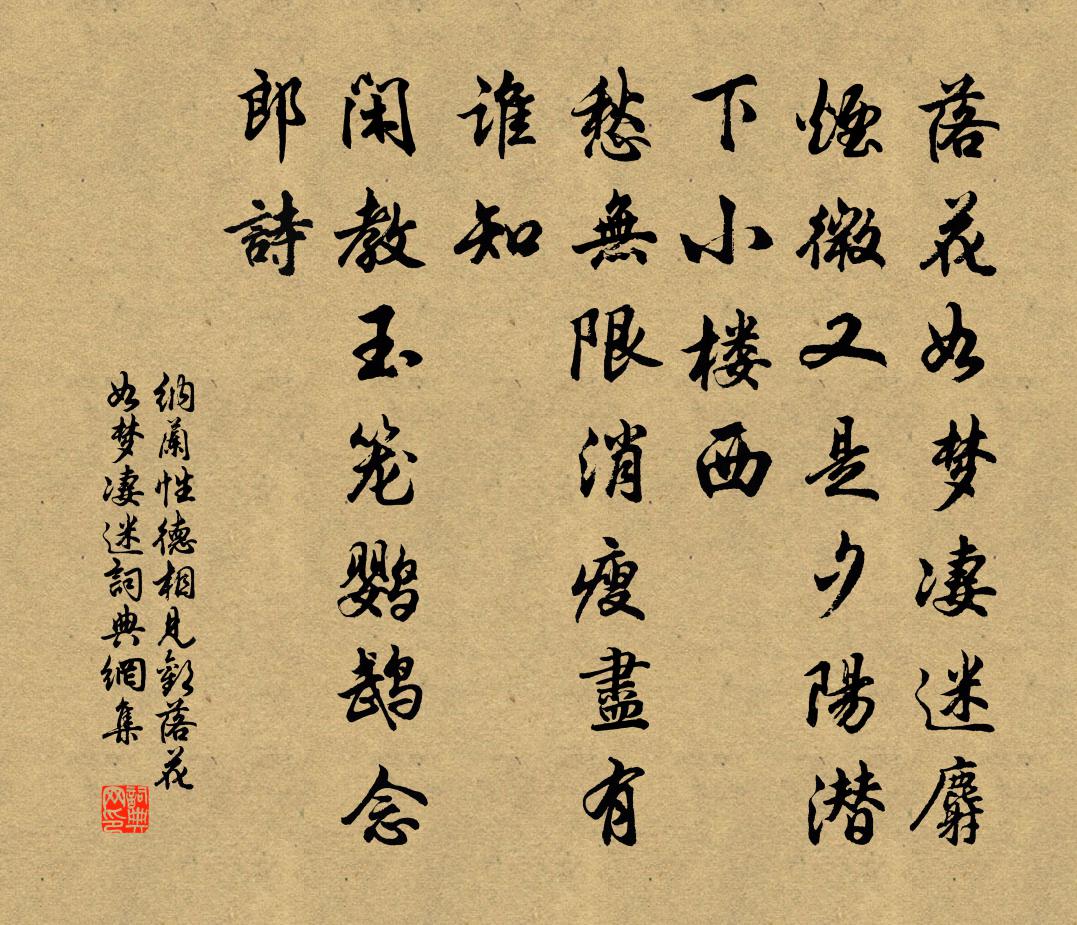 落花如梦凄迷麝
煙微又是夕陽潜
下小楼西
愁無限消瘦盡有
谁知
闲教玉笼鹦鹉念
郎詩
纳蘭性德相見歡落花
如梦凄迷詞典網集
詞典网印